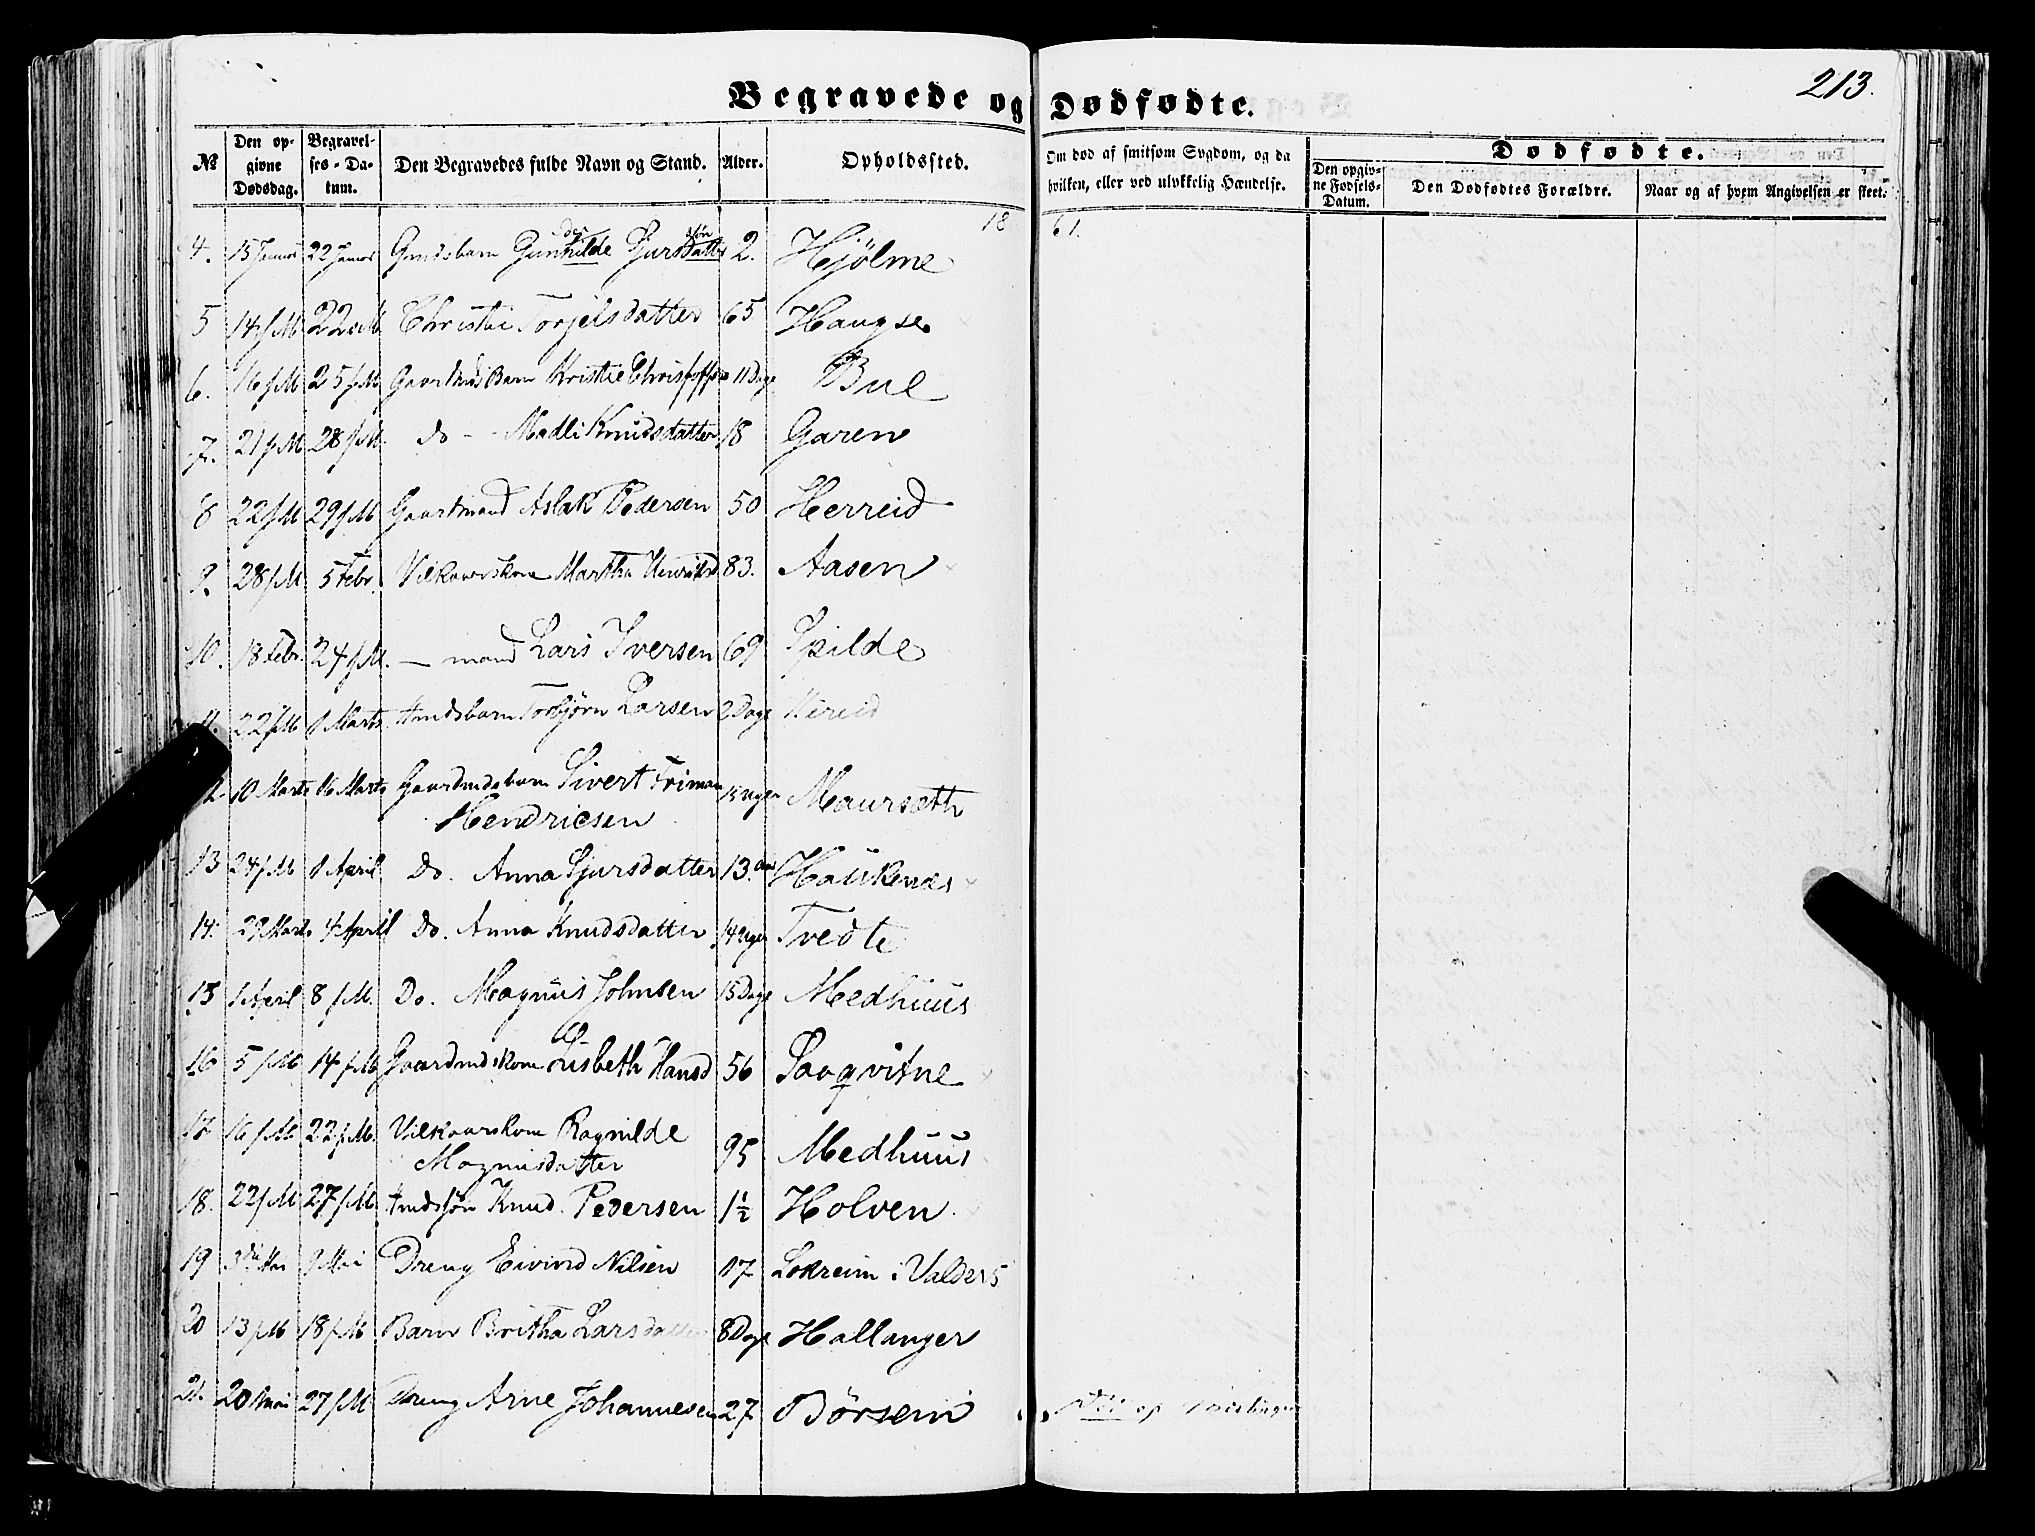 213.
Begravede og Dødfødte.
№
Den opgivne Dødsdag.
Begravelses-Datum.
Den Begravedes fulde Navn og Stand.
Alder.
Opholdssted.
Om død af smitsom Sygdom, og da hvilken, eller ved ulykkelig Hændelse.
Dødfødte.
Den opgivne Fødsels-Datum.
Den Dødfødtes Forældre.
Naar og af hvem Angivelsen er skeet.
1861.
4. 15 Januar 22 Januar Gmdsbarn Gunhilde Sjursdatter 2. Hjölme
5 14 f M 22 f M. Christie Torjelsdatter 65 Haugse
6. 16 f M 25 f M. Kristie 11 Dage Bue
7. 21 f M 28 f M. do - - Madli Knudsdatter 18 Garen
8 22 f M 29 f M Gaardmand Aslak Pedersen 50 Herreid
9. 28 f M 5 Febr. Vilkaarskone Martha Henriksd 83. Aasen
10. 18 Febr. 24 f M. — mand Lars Iversen 69 Spilde
11. 22 f M 1 Marts Torbjørn Larsen 2 Dage Hereid
12. 10 Marts 16 Marts Gaardmdsbarn Sivert Friman 15 Uger Maursæth
Hendricsen
13 24 f M 1 April Do. Anna Sjursdatter 13. Haukenæs
14. 29 Marts 4 April Do. Anna Knudsdatter 14 Uger Tvedte
15 1 April 8 f M. Do. Magnus Johnsen 15 Dage Medhuus
16 5 f M 14 f M Gaardmdskone Lisbeth Hansd 56 Saaqvitne
17 16 f M 22 f M. Vilkaarskone Ragnilde
Magnusdatter 95 Medhuus
18. 22 f M 27 f M. Knud Pedersen 1½ Holven
19 3 Mai 9 Mai Dreng Eivind Nilsen 17 Lokreim i Valders
20 13 f M 18 f M Barn Britha Larsdatter 8 Dage Hallanger
21. 20 Mai 27 f M Dreng Arne Johannesen 27 Börsem